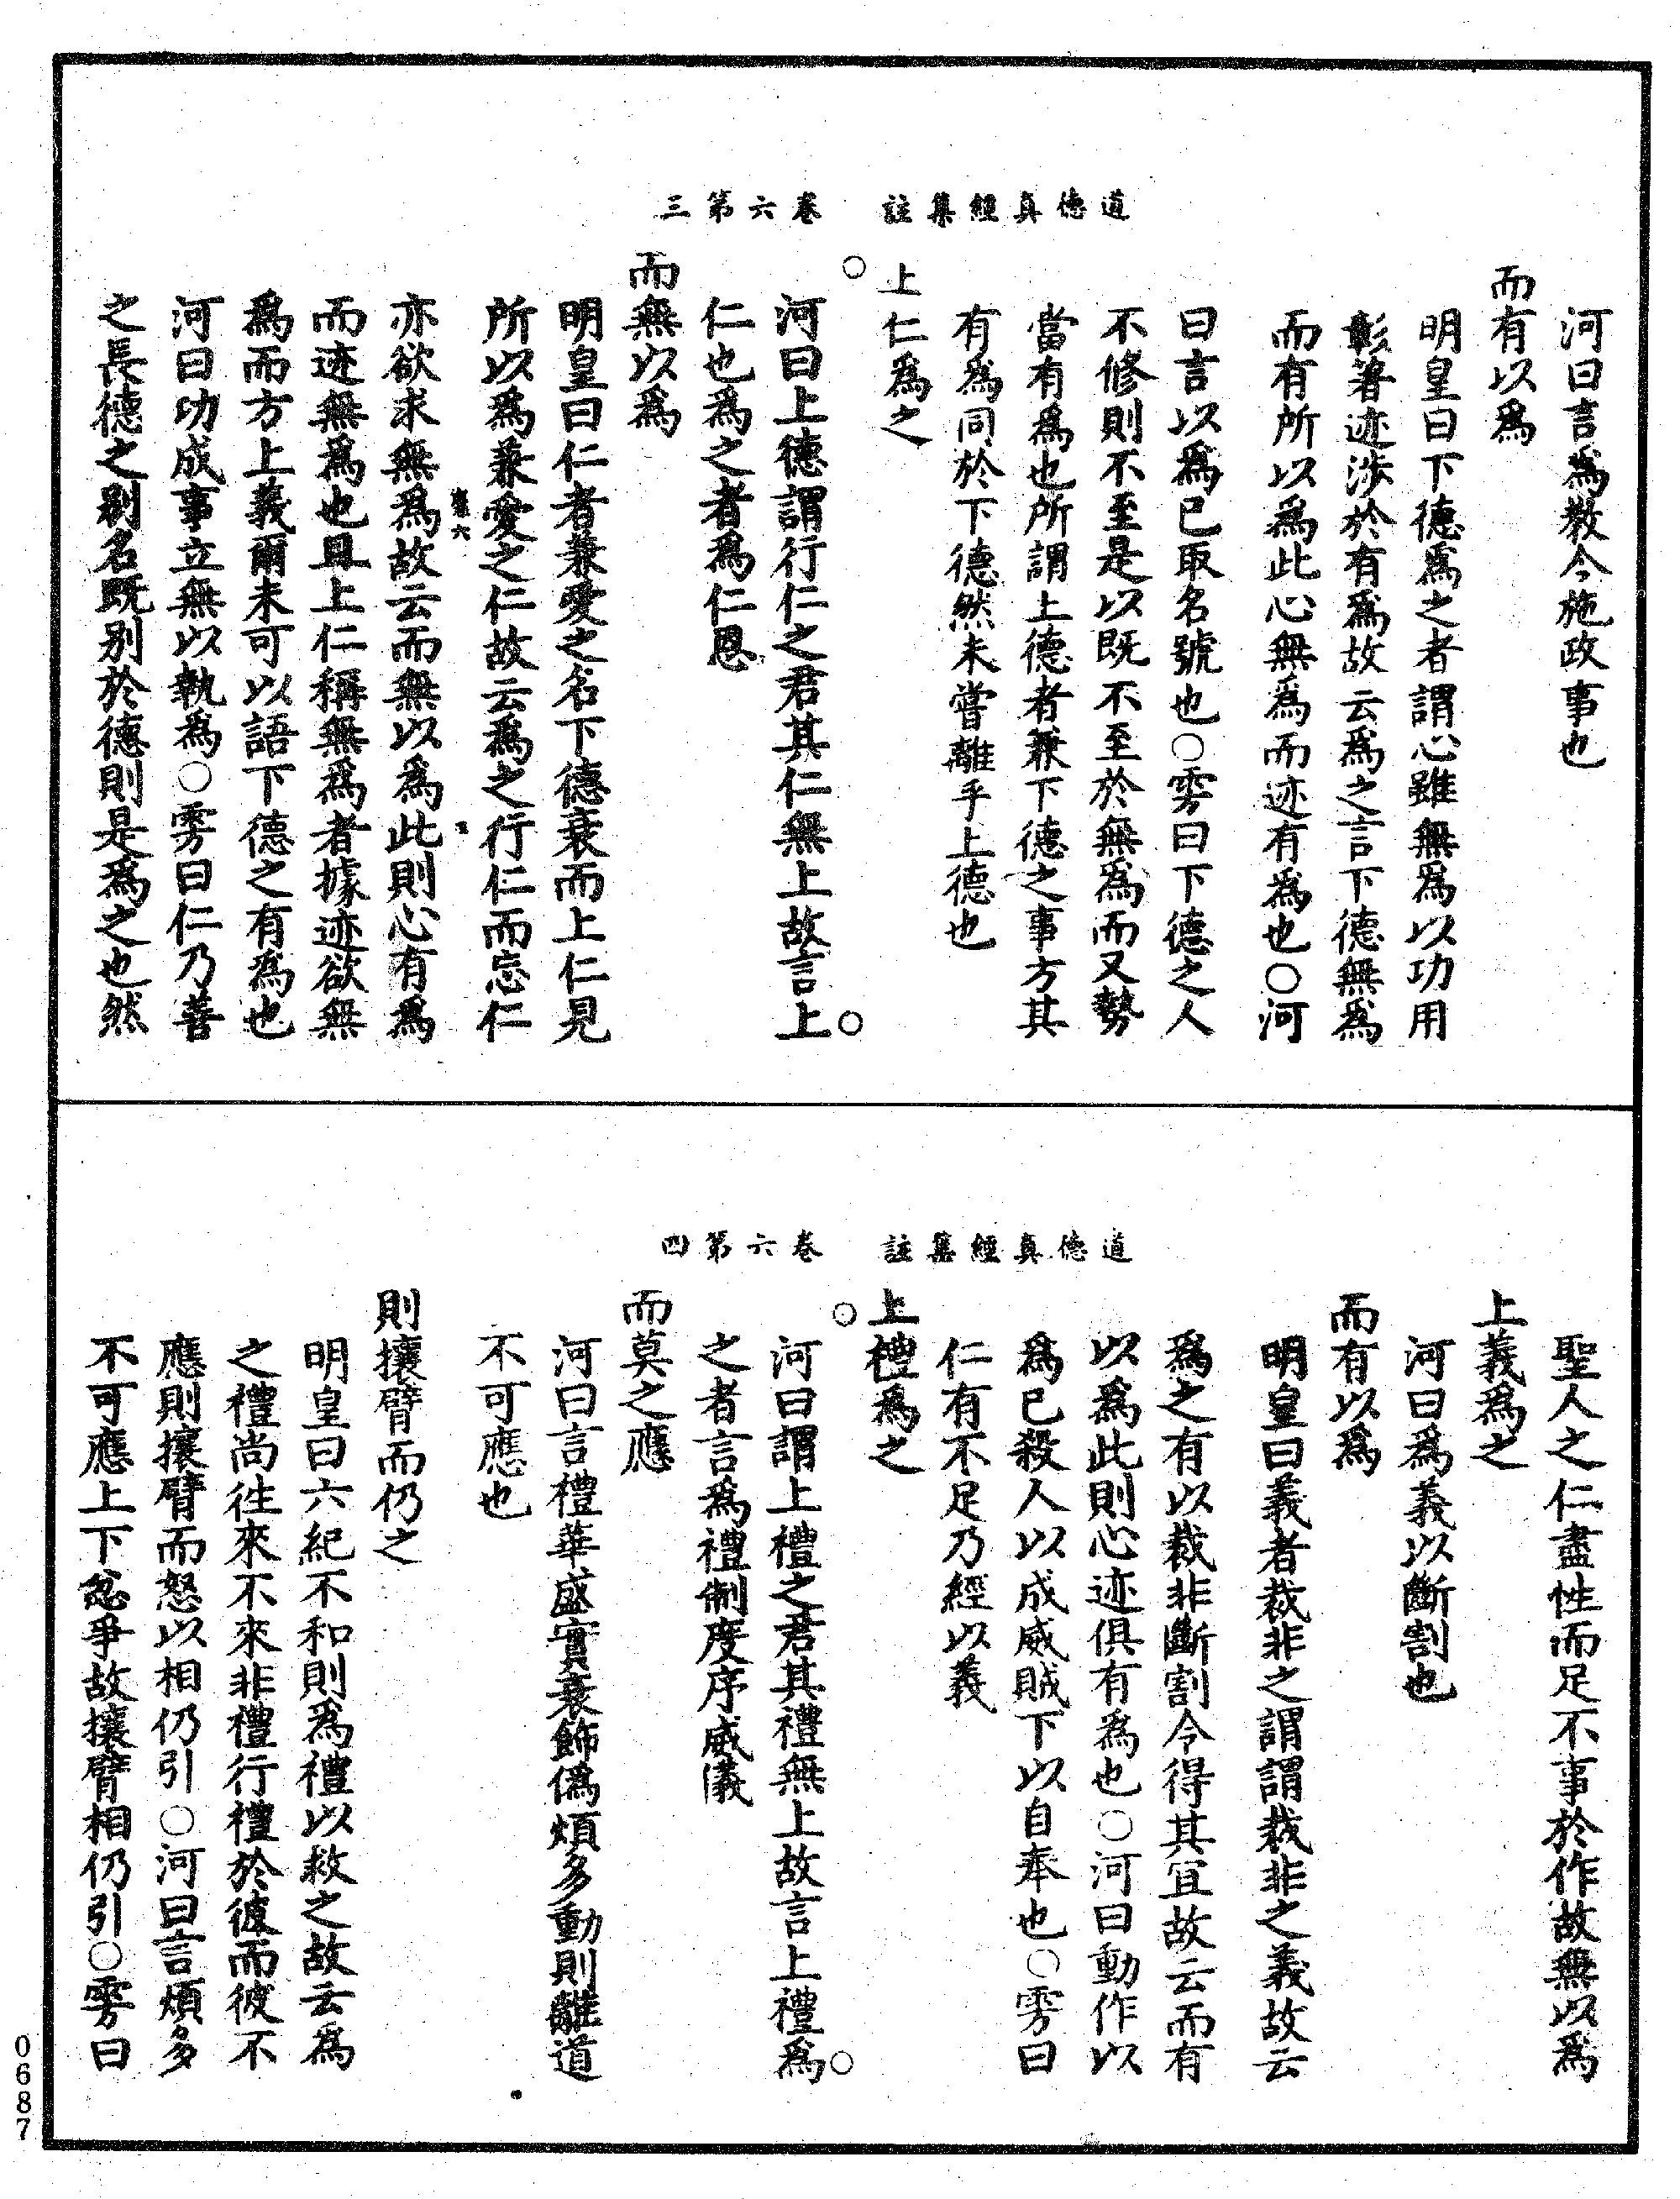 道德真經集註　卷六第三
河曰言爲教令施政事也
而有以爲
明皇曰下德爲之者謂心雖無爲以功用
彰著迹涉於有爲故云爲之言下德無爲
而有所以爲此心無爲而迹有爲也○河
曰言以爲已取名號也○雱曰下德之人
不修則不至是以既不至於無爲而又勢
當有爲也所謂上德者兼下德之事方其
有爲同於下德然未嘗離乎上德也
上仁爲之
河曰上德謂行仁之君其仁無上故言上
仁也爲之者爲仁恩
而無以爲
明皇曰仁者兼愛之名下德衰而上仁見
所以爲兼愛之仁故云爲之行仁而忘仁
亦欲求無爲故云而無以爲此則心有爲
而迹無爲也且上仁稱無爲者據迹欲無
爲而方上義爾未可以語下德之有爲也
河曰功成事立無以執爲○雱曰仁乃善
之長德之别名既别於德則是爲之也然
道德真經集註　卷六第四
聖人之仁盡性而足不事於作故無以爲
上義爲之
河曰爲義以斷割也
而有以爲
明皇曰義者裁非之謂謂裁非之義故云
爲之有以裁非斷割令得其宜故云而有
以爲此則心迹俱有爲也○河曰動作以
爲已殺人以成威賊下以自奉也○雱曰
仁有不足乃經以義
上禮爲之
河曰謂上禮之君其禮無上故言上禮爲
之者言爲禮制度序威儀
而莫之應
河曰言禮華盛實衰飾僞煩多動則離道
不可應也
則攘臂而仍之
明皇曰六紀不和則爲禮以救之故云爲
之禮尚往來不來非禮行禮於彼而彼不
應則攘臂而怒以相仍引○河曰言煩多
不可應上下忿爭故攘臂相仍引○雱曰
0687